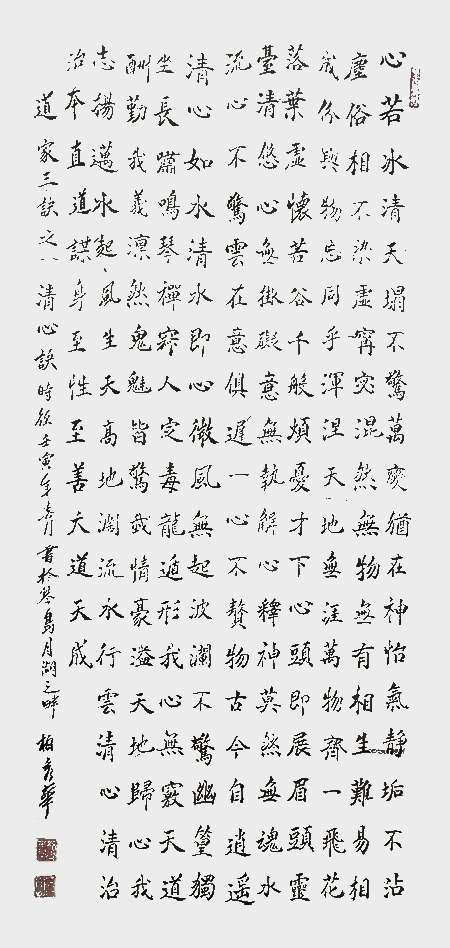 心若冰清天塌不驚萬變猶在神怡氣靜垢不沾
塵俗相不染虛寧宓混然無物無有相生難易相
成份與物忘同乎渾涅天地無涯萬物齊一飛花
落葉虛懷若谷千般煩憂才下心頭即展眉頭靈
臺清悠心無掛礙意無執解心釋神莫然無魂水
流心不驚雲在意俱遲一心不贅物古今自逍遙
清心如水清水即心微風無起波瀾不驚幽篁獨
坐長嘯鳴琴禪寂人定毒龍遁形我心無竅天道
酬勤我義凜然鬼魅皆驚我情豪溢天地歸心我
志揚邁冰起風生天高地濶流水行雲清心清治
治本直道謀身至性至善大道天成
道家三訣之清心訣時壬寅年月書於琴島月湖之畔華